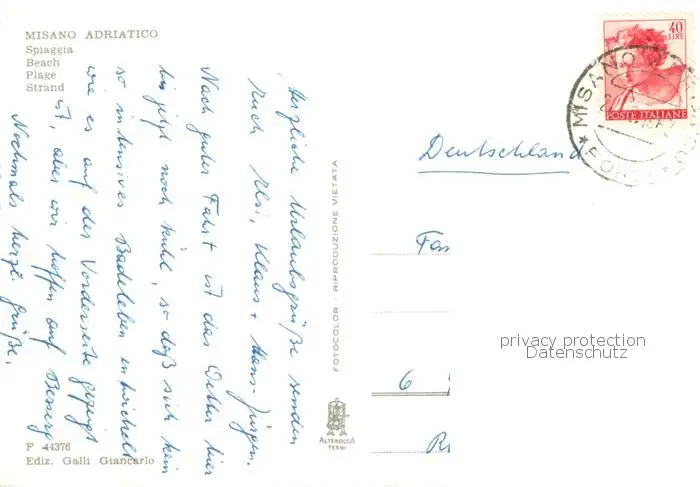 MISANO ADRIATICO
Spiaggia
Beach
Plage
Strand
Herzliche Urlaubsgrüße senden
Euch Uli, Klaus + Hans-Jürgen.
Nach guter Fahrt ist das Wetter hier
bis jetzt noch kühl, so daß sich kein
so intensives Badeleben entwickelt
wie es auf der Vorderseite gezeigt
ist, aber wir hoffen auf Besserg
Nochmals herzl. Grüße.
F 44376
Ediz. Galli Giancarlo
FOTOCOLOR - RIPRODUZIONE VIETATA
ALTEROCCA
TERNI
40
LIRE
POSTE ITALIANE
MISANO
Deutschland
6
privacy protection
Datenschutz